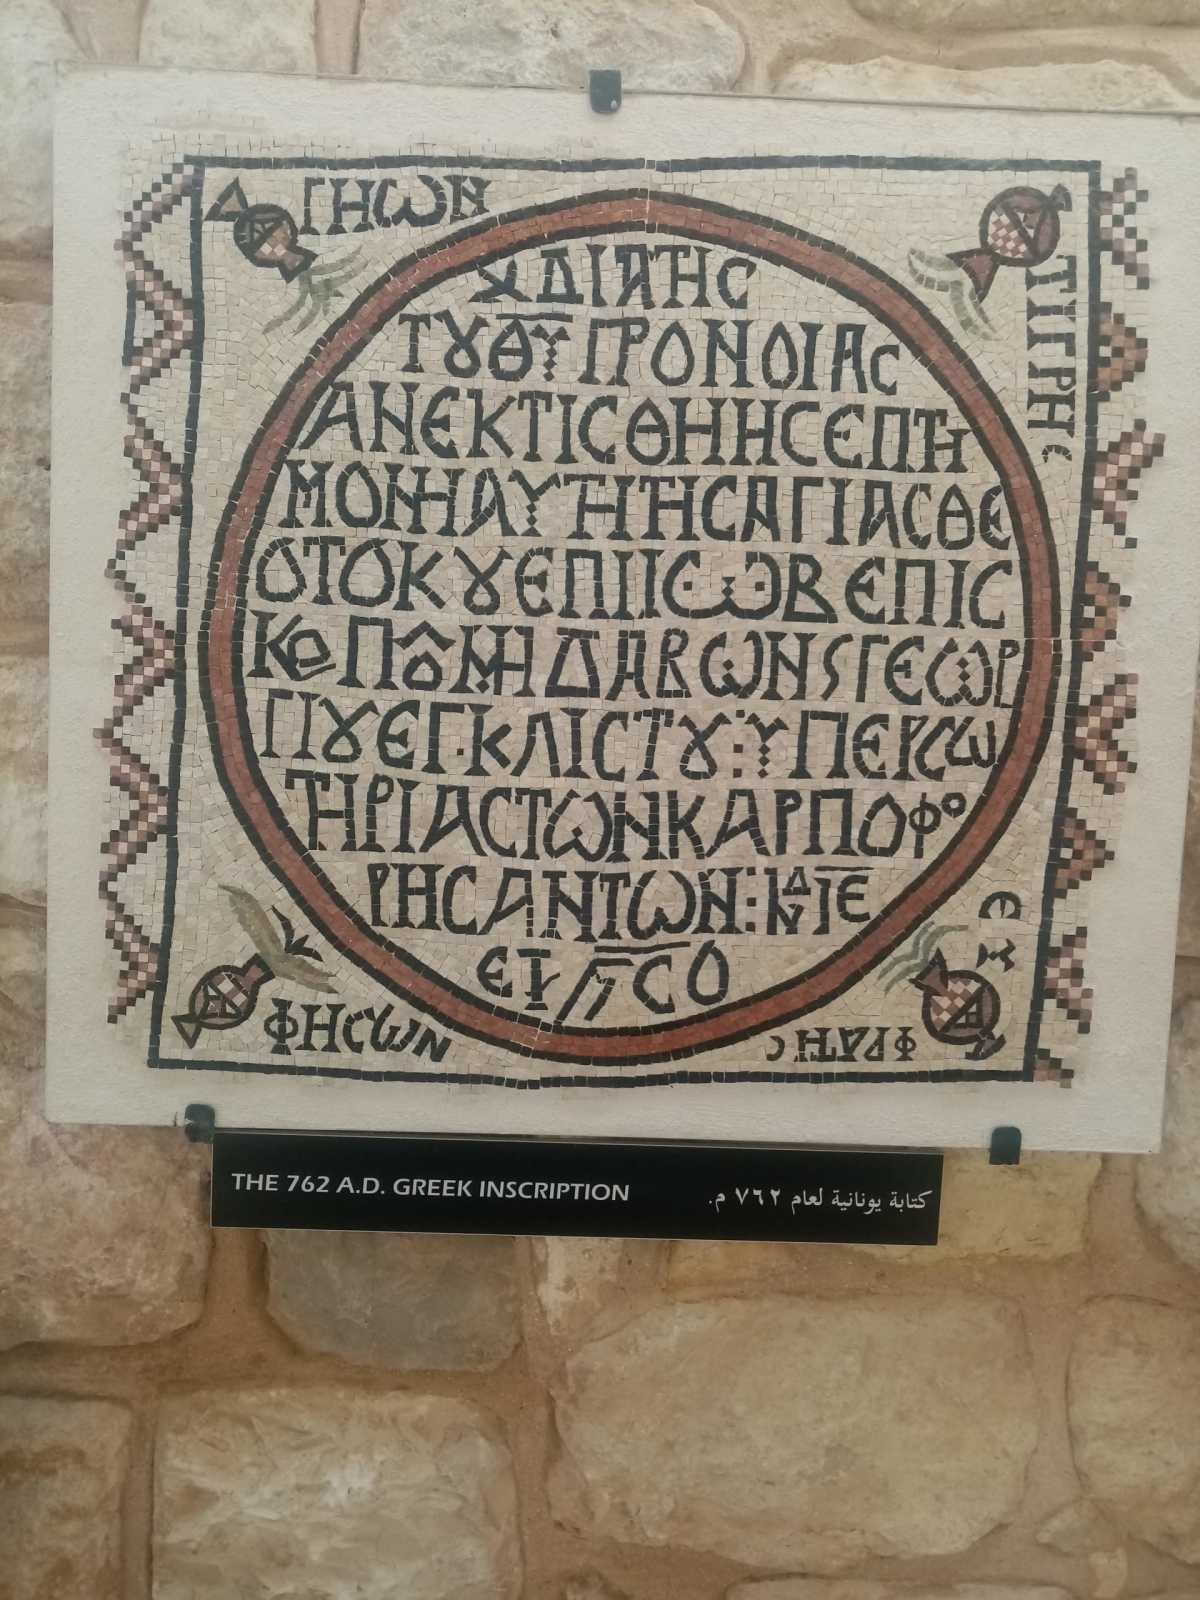 ΓΗΩΝ
ΤΙΓΡΗς
ΧΔΙΑΤΗς
ΤȣΘῩΠΡΟΝΟΙΑς
ΑΝΕΚΤΙϹΘΗΗϹΕΠΤΗ
ΜΟΝΗΑΥΤΗΤΗϹΑΓΙΑϹΘΕ
ΟΤΟΚȣΕΠΙΙϹ:Ω:ΒΕΠΙϹ
ΚΟΠȣΜΗΔΑΒΩΝSΓΕΩΡ
ΓΙȣΕΓ·ΚΛΙϹΤȣ:ΥΠΕΡϹΩ
ΤΗΡΙΑϹΤΩΝΚΑΡΠΟΦΟ
ΡΗϹΑΝΤΩΝ:ΙΝΔΙΕ
ΕΤ ϹΟ
ΦΗϹΩΝ
ΕΥ
ΦΡΑΤΗϹ
THE 762 A.D. GREEK INSCRIPTION
كتابة يونانية لعام ٧٦٢ م.